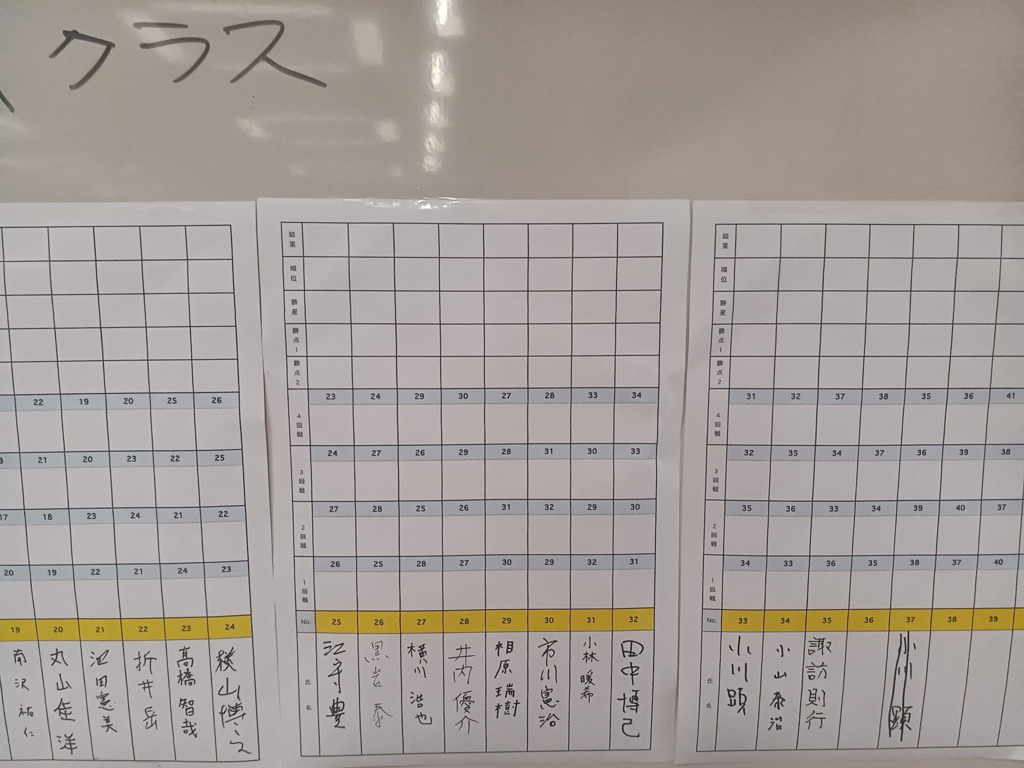 クラス
22 19 20 25 26
21 20 23 22 25
17 18 23 24 21 22
20 19 22 21 24 23
19 20 21 22 23 24
南沢祐仁
丸山隼洋
池田憲美
折井岳
高橋智哉
横山博之
結果
順位
勝星
勝点1
勝点2
23 24 29 30 27 28 33 34
4回戦
24 27 26 29 28 31 30 33
3回戦
27 28 25 26 31 32 29 30
2回戦
26 25 28 27 30 29 32 31
1回戦
No. 25 26 27 28 29 30 31 32
氏名
江守豊
黒岩泰
横川浩也
井内優介
相原瑞樹
市川憲治
小林暖希
田中博己
結果
順位
勝星
勝点1
勝点2
31 32 37 38 35 36 41
4回戦
32 35 34 37 36 39 38
3回戦
35 36 33 34 39 40 37
2回戦
34 33 36 35 38 37 40
1回戦
No. 33 34 35 36 37 38 39
氏名
小川顕
小山泰治
諏訪則行
小川